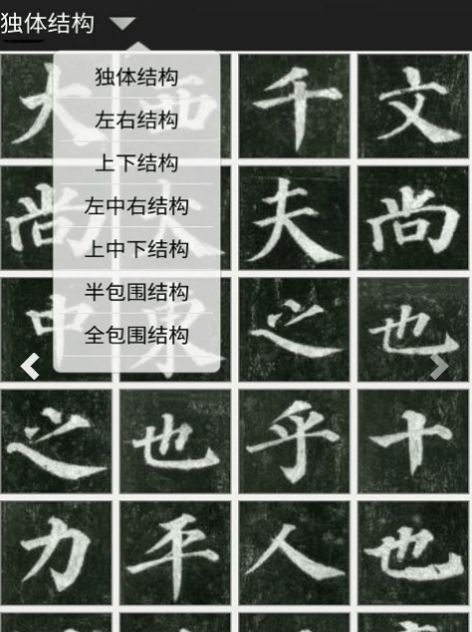 独体结构
独体结构
左右结构
上下结构
左中右结构
上中下结构
半包围结构
全包围结构
大 西 千 文
尚 大 夫 尚
中 東 之 也
之 也 乎 十
力 平 人 也